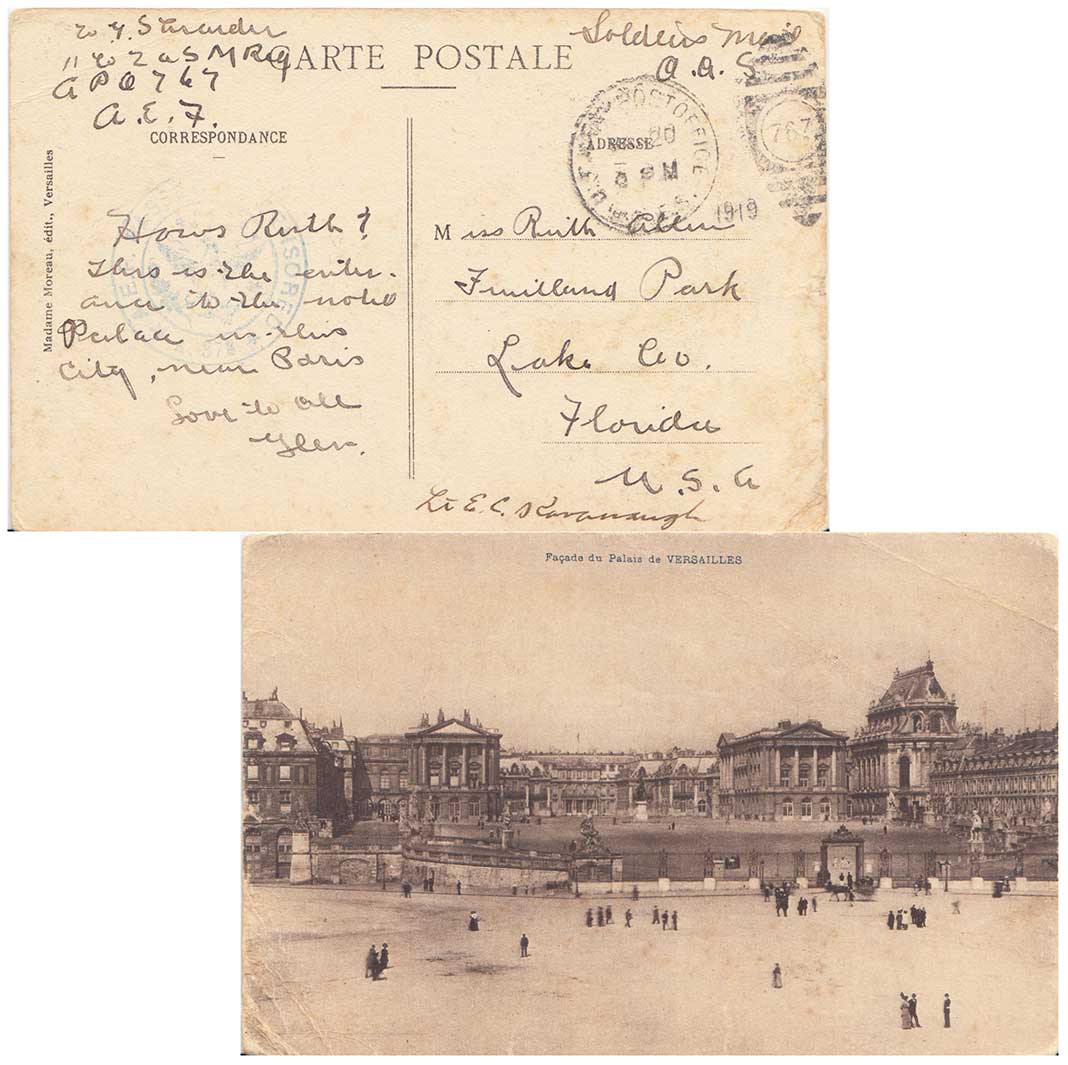 W. G. Strawder
11 Co 2 ASM Reg
APO 767
A.E.F.
CARTE POSTALE
Soldiers Mail
CORRESPONDANCE
ADRESSE
POSTOFFICE
20
PM
1919
767
Madame Moreau, édit., Versailles
Hows Ruth?
This is the enter-
ance to the noted
Palace in this
City, near Paris
Love to all
Glen.
Miss Ruth Allen
Fruitland Park
Lake Co.
Florida
U.S.A
Lt E. C. Kavanaugh
Façade du Palais de VERSAILLES